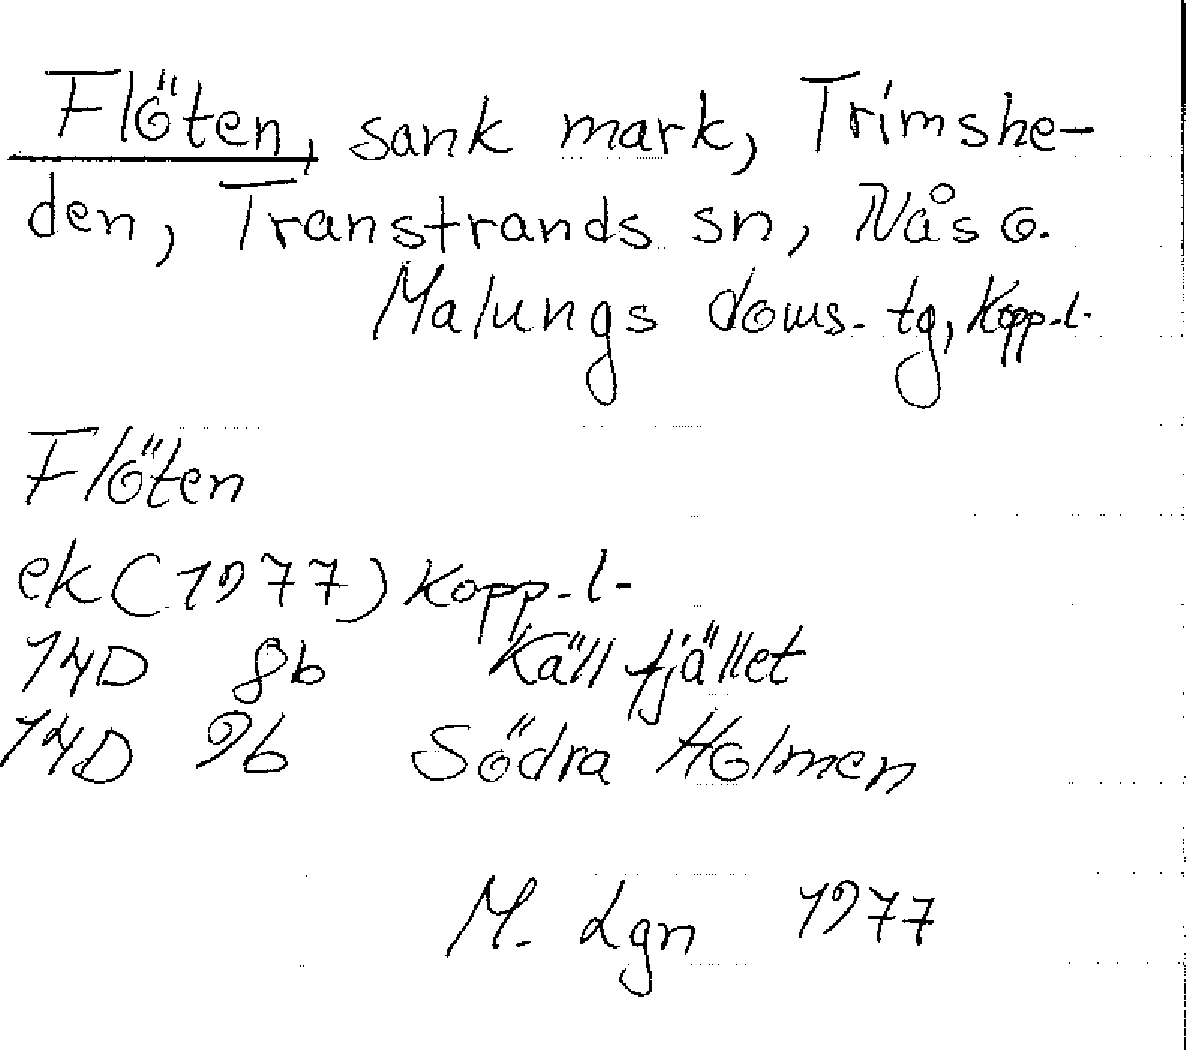 Flöten, sank mark, Trimshe-
den, Transtrands sn, Nås o.
Malungs doms. tg, Kopp.l.
Flöten
ek (1977) Kopp.l.
14D 8b Källfjället
14D 9b Södra Holmen
M. Lgn 1977